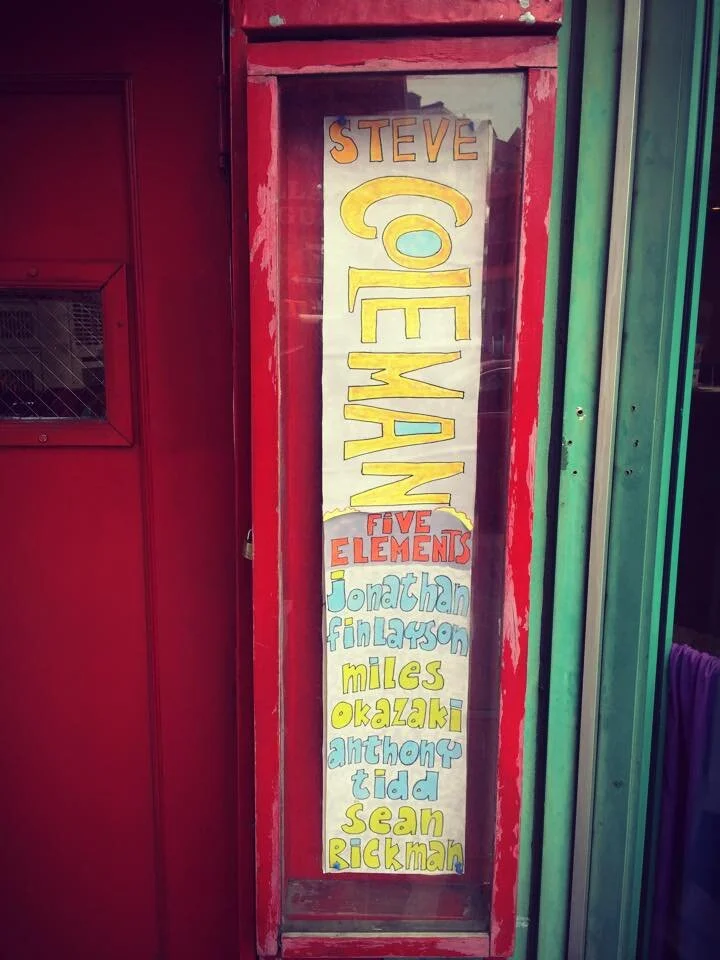 STEVE
COLEMAN
FIVE
ELEMENTS
Jonathan
finlayson
miles
okazaki
anthony
tidd
sean
Rickman